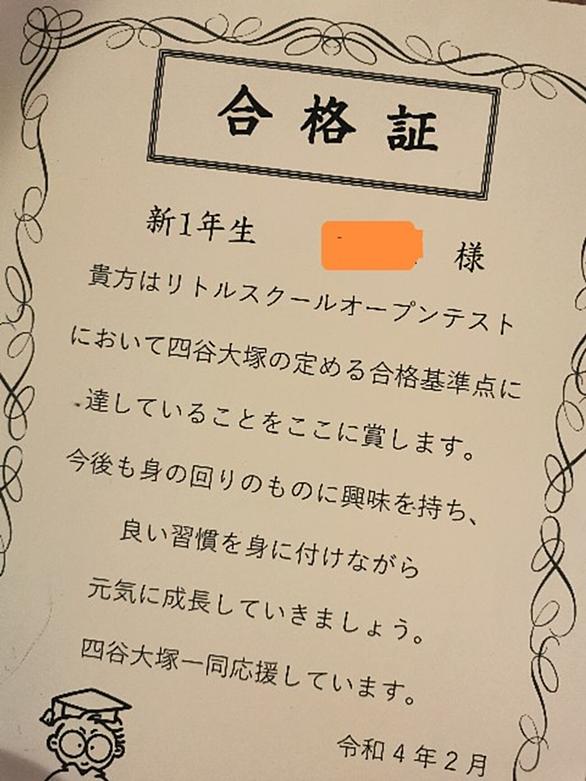 合格証
新1年生 様
貴方はリトルスクールオープンテスト
において四谷大塚の定める合格基準点に
達していることをここに賞します。
今後も身の回りのものに興味を持ち、
良い習慣を身に付けながら
元気に成長していきましょう。
四谷大塚一同応援しています。
令和4年2月